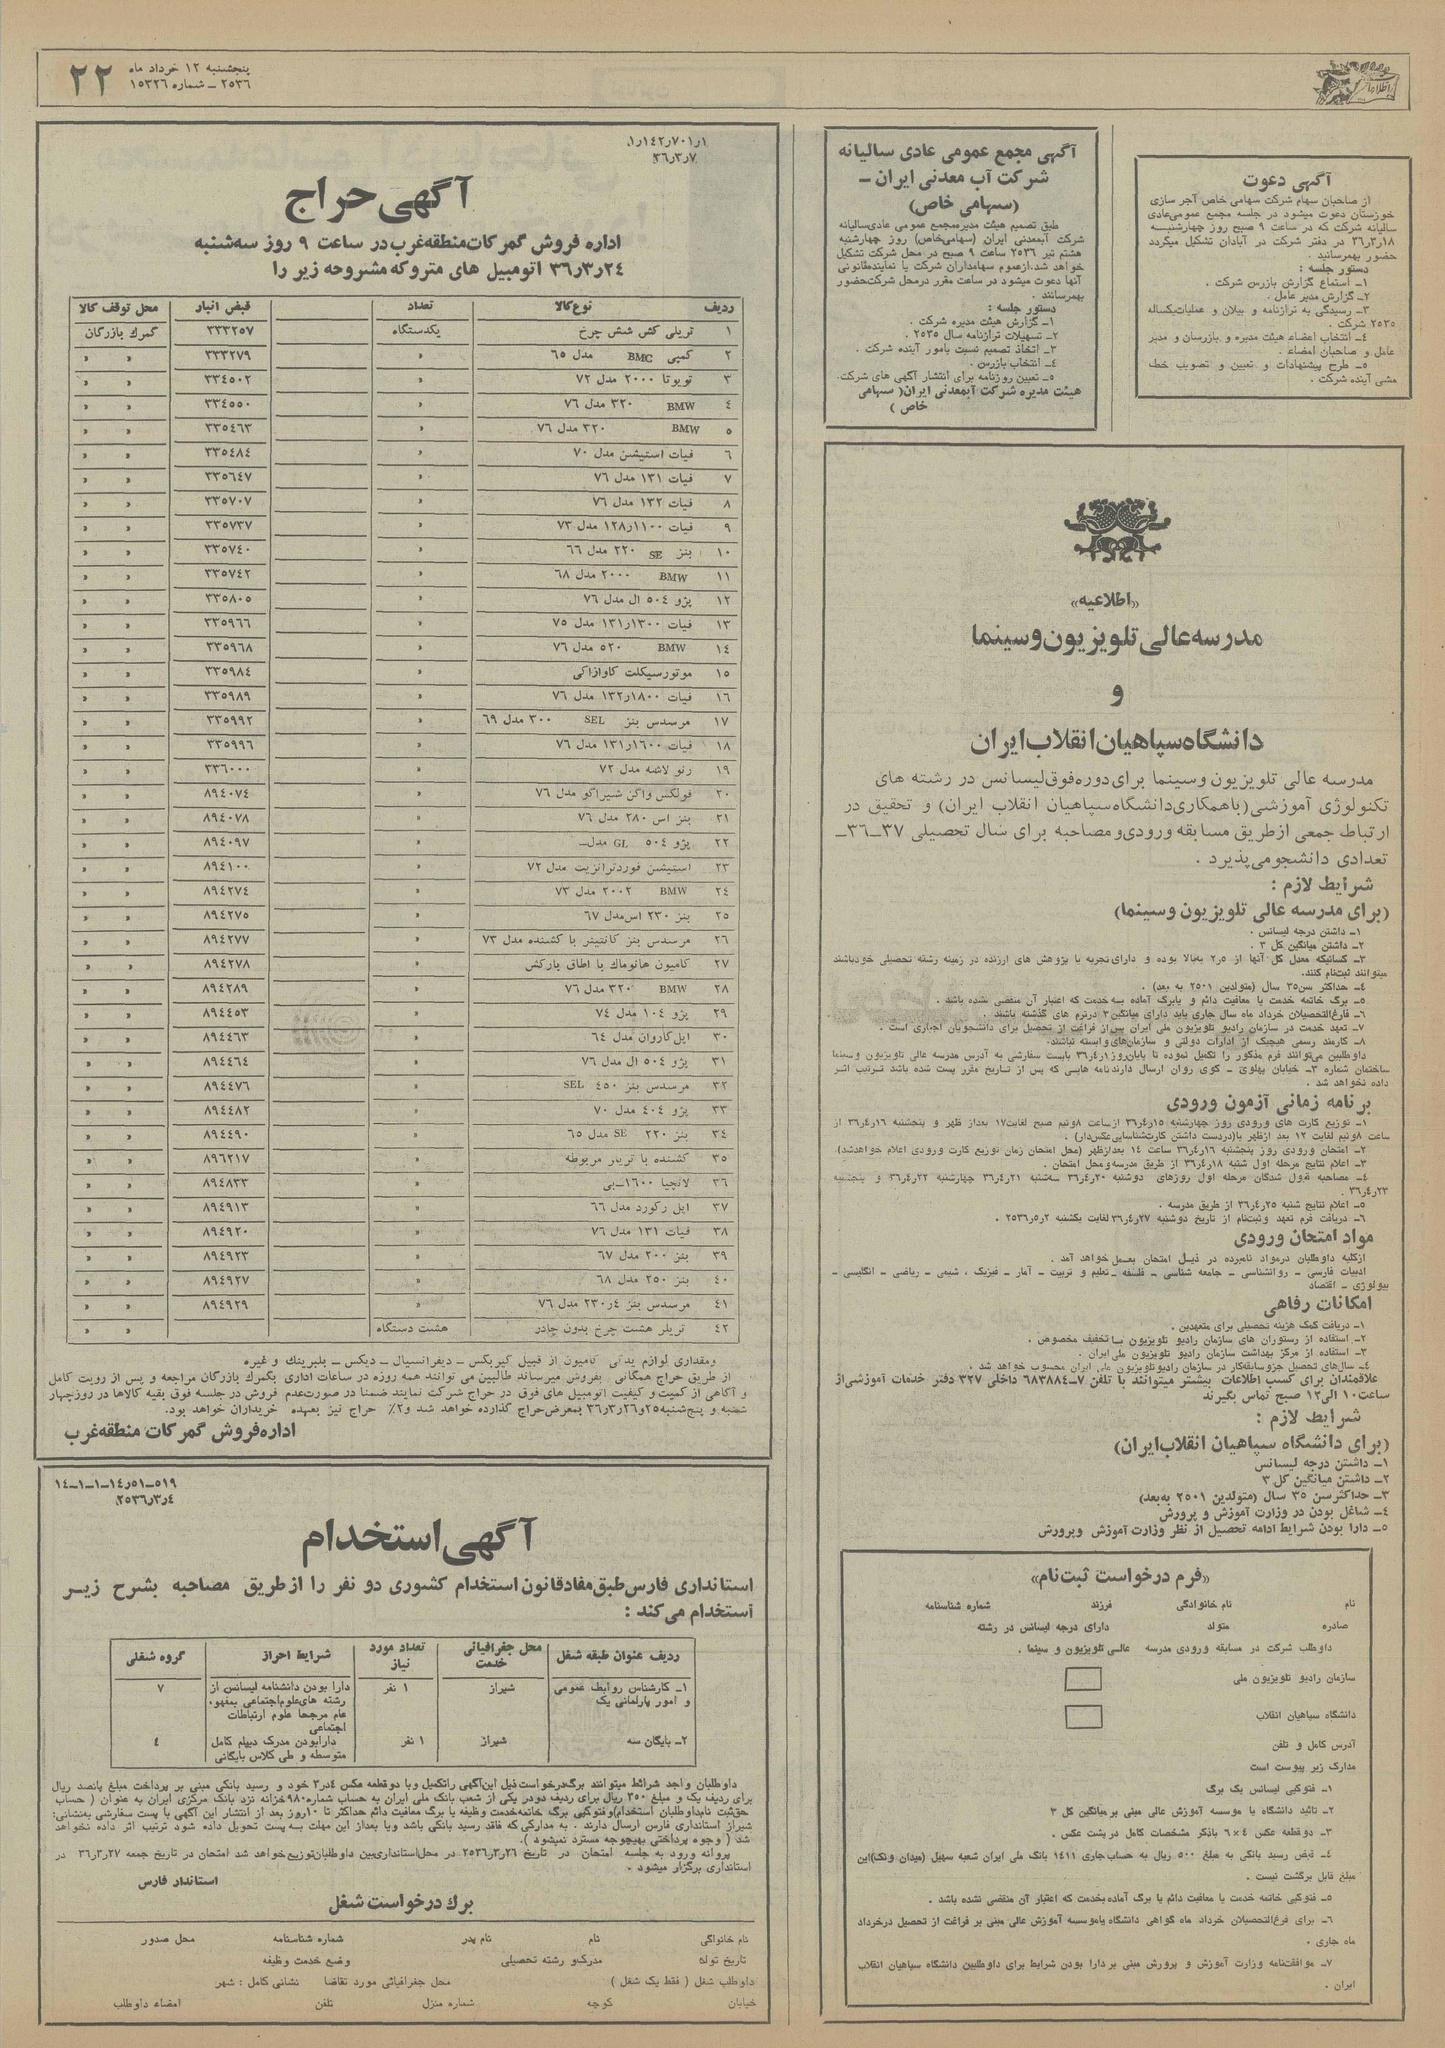 پنجشنبه ۱۲ خرداد ماه
۲۵۳۶ ـ شماره ۱۵۳۲۶
۲۲
آگهی دعوت
از صاحبان سهام شرکت سهامی خاص آجر سازی
خوزستان دعوت میشود در جلسه مجمع عمومی‌عادی
سالیانه شرکت که در ساعت ۹ صبح روز چهارشنبه
۳۶ر۳ر۱۸ در دفتر شرکت در آبادان تشکیل میگردد
حضور بهمرسانید .
دستور جلسه :
۱ـ استماع گزارش بازرس شرکت .
۲ـ گزارش مدیر عامل .
۳ـ رسیدگی به ترازنامه و بیلان و عملیات‌یکساله
۲۵۳۵ شرکت .
۴ـ انتخاب اعضاء هیئت مدیره و بازرسان و مدیر
عامل و صاحبان امضاء .
۵ـ طرح پیشنهادات و تعیین و تصویب خط
مشی آینده شرکت .
آگهی مجمع عمومی عادی سالیانه
شرکت آب معدنی ایران ـ
(سهامی خاص)
طبق تصمیم هیئت مدیره‌مجمع عمومی عادی‌سالیانه
شرکت آبمعدنی ایران (سهامی‌خاص) روز چهارشنبه
هشتم تیر ۲۵۳۶ ساعت ۹ صبح در محل شرکت تشکیل
خواهد شد.ازعموم سهامداران شرکت یا نماینده‌قانونی
آنها دعوت میشود در ساعت مقرر درمحل شرکت‌حضور
بهمرسانند .
دستور جلسه :
۱ـ گزارش هیئت مدیره شرکت .
۲ـ تسهیلات ترازنامه سال ۲۵۳۵ .
۳ـ اتخاذ تصمیم نسبت بامور آینده شرکت .
۴ـ انتخاب بازرس .
۵ـ تعیین روزنامه برای انتشار آگهی های شرکت.
هیئت مدیره شرکت آبمعدنی ایران( سهامی
خاص )
«اطلاعیه»
مدرسه عالی تلویزیون وسینما
و
دانشگاه سپاهیان انقلاب ایران
مدرسه عالی تلویزیون وسینما برای دوره فوق‌لیسانس در رشته های
تکنولوژی آموزشی(باهمکاری دانشگاه سپاهیان انقلاب ایران) و تحقیق در
ارتباط جمعی ازطریق مسابقه ورودی‌و مصاحبه برای سال تحصیلی ۳۷ـ۳۶ـ
تعدادی دانشجو می‌پذیرد .
شرایط لازم :
(برای مدرسه عالی تلویزیون وسینما)
۱ـ داشتن درجه لیسانس .
۲ـ داشتن میانگین کل ۳ .
۳ـ کسانیکه معدل کل آنها از ۲٫۵ به‌بالا بوده و دارای تجربه یا پژوهش های ارزنده در زمینه رشته تحصیلی خودباشند
میتوانند ثبت‌نام کنند.
۴ـ حداکثر سن ۳۵ سال (متولدین ۲۵۰۱ به بعد) .
۵ـ برگ خاتمه خدمت یا معافیت دائم و یابرگ آماده به‌خدمت که اعتبار آن منقضی نشده باشد .
۶ـ فارغ‌التحصیلان خرداد ماه سال جاری باید دارای میانگین ۳ درترم های گذشته باشند .
۷ـ تعهد خدمت در سازمان رادیو تلویزیون ملی ایران پس‌از فراغت از تحصیل برای دانشجویان اجباری است .
۸ـ کارمند رسمی هیچیک از ادارات دولتی و سازمان‌های‌وابسته نباشند.
داوطلبین می‌توانند فرم مذکور را تکمیل نموده تا پایان‌روز ۳۶ر۴ر۱ بایست سفارشی به آدرس مدرسه عالی تلویزیون وسینما
ساختمان شماره ۳ـ خیابان پهلوی ـ کوی روان ارسال دارند نامه هایی که پس از تاریخ مقرر پست شده باشد ترتیب اثر
داده نخواهد شد .
برنامه زمانی آزمون ورودی
۱ـ توزیع کارت های ورودی روز چهارشنبه ۳۶ر۴ر۱۵ ازساعت ۸ونیم صبح لغایت۱۷ بعداز ظهر و پنجشنبه ۳۶ر۴ر۱۶ از
ساعت ۸ونیم لغایت ۱۲ بعد ازظهر با(دردست داشتن کارت‌شناسایی‌عکس‌دار) .
۲ـ امتحان ورودی روز پنجشنبه ۳۶ر۴ر۱۶ ساعت ۱۴ بعدازظهر (محل امتحان زمان توزیع کارت ورودی اعلام خواهدشد)
۳ـ اعلام نتایج مرحله اول شنبه ۳۶ر۴ر۱۸ از طریق مدرسه‌و محل امتحان .
۴ـ مصاحبه قبول شدگان مرحله اول روزهای دوشنبه ۳۶ر۴ر۲۰ سه‌شنبه ۳۶ر۴ر۲۱ چهارشنبه ۳۶ر۴ر۲۲ و پنجشنبه
۳۶ر۴ر۲۳ .
۵ـ اعلام نتایج شنبه ۳۶ر۴ر۲۵ از طریق مدرسه .
۶ـ دریافت فرم تعهد و ثبت‌نام از تاریخ دوشنبه ۳۶ر۴ر۲۷ لغایت یکشنبه ۲۵۳۶ر۵ر۲ .
مواد امتحان ورودی
ازکلیه داوطلبان درمواد نامبرده در ذیل امتحان بعمل خواهد آمد .
ادبیات فارسی ـ روانشناسی ـ جامعه شناسی ـ فلسفه ـ تعلیم و تربیت ـ آمار ـ فیزیک ، شیمی ـ ریاضی ـ انگلیسی ـ
بیولوژی ـ اقتصاد
امکانات رفاهی
۱ـ دریافت کمک هزینه تحصیلی برای متعهدین .
۲ـ استفاده از رستوران های سازمان رادیو تلویزیون با تخفیف مخصوص .
۳ـ استفاده از مرکز بهداشت سازمان رادیو تلویزیون ملی ایران .
۴ـ سال‌های تحصیل جزو سابقه‌کار در سازمان رادیو تلویزیون ملی ایران محسوب خواهد شد .
علاقمندان برای کسب اطلاعات بیشتر میتوانند با تلفن ۷ـ۶۸۳۸۸۴ داخلی ۳۲۷ دفتر خدمات آموزشی‌از
ساعت ۱۰ الی ۱۲ صبح تماس بگیرند
شرایط لازم :
(برای دانشگاه سپاهیان انقلاب ایران)
۱ـ داشتن درجه لیسانس
۲ـ داشتن میانگین کل ۳
۳ـ حداکثرسن ۳۵ سال (متولدین ۲۵۰۱ به‌بعد)
۴ـ شاغل بودن در وزارت آموزش و پرورش
۵ـ دارا بودن شرایط ادامه تحصیل از نظر وزارت آموزش وپرورش
«فرم درخواست ثبت‌نام»
نام نام خانوادگی فرزند شماره شناسنامه
صادره متولد دارای درجه لیسانس در رشته
داوطلب شرکت در مسابقه ورودی مدرسه عالی تلویزیون و سینما .
سازمان رادیو تلویزیون ملی
دانشگاه سپاهیان انقلاب
آدرس کامل و تلفن
مدارک زیر پیوست است
۱ـ فتوکپی لیسانس یک برگ
۲ـ تائید دانشگاه یا موسسه آموزش عالی مبنی بر میانگین کل ۳
۳ـ دو قطعه عکس ۴×۶ باذکر مشخصات کامل در پشت عکس .
۴ـ قبض رسید بانکی به مبلغ ۵۰۰ ریال به حساب جاری ۱۴۱۱ بانک ملی ایران شعبه سهیل (میدان ونک)این
مبلغ قابل برگشت نیست .
۵ـ فتوکپی خاتمه خدمت یا معافیت دائم یا برگ آماده بخدمت که اعتبار آن منقضی نشده باشد .
۶ـ برای فرغ‌التحصیلان خرداد ماه گواهی دانشگاه یاموسسه آموزش عالی مبنی بر فراغت از تحصیل درخرداد
ماه جاری .
۷ـ موافقت‌نامه وزارت آموزش و پرورش مبنی بر دارا بودن شرایط برای داوطلبین دانشگاه سپاهیان انقلاب
ایران .
۱ر۱۴۲ر۷۰۱ر۱
۳۶ر۳ر۷
آگهی حراج
اداره فروش گمرکات منطقه غرب در ساعت ۹ روز سه‌شنبه
۳۶ر۳ر۲۴ اتومبیل های متروکه مشروحه زیر را
ردیف نوع کالا تعداد قبض انبار محل توقف کالا
۱ تریلی کش شش چرخ یکدستگاه ۳۳۳۲۵۷ گمرک بازرگان
۲ کمپی BMC مدل ۶۵ » ۳۳۳۲۷۹ » »
۳ تویوتا ۲۰۰۰ مدل ۷۲ » ۳۳۴۵۰۲ » »
۴ BMW ۳۲۰ مدل ۷۶ » ۳۳۴۵۵۰ » »
۵ BMW ۳۲۰ مدل ۷۶ » ۳۳۵۴۶۳ » »
۶ فیات استیشن مدل ۷۰ » ۳۳۵۴۸۴ » »
۷ فیات ۱۳۱ مدل ۷۶ » ۳۳۵۶۴۷ » »
۸ فیات ۱۳۲ مدل ۷۶ » ۳۳۵۷۰۷ » »
۹ فیات ۱۱۰۰ر۱۲۸ مدل ۷۳ » ۳۳۵۷۳۷ » »
۱۰ بنز SE ۲۲۰ مدل ۶۶ » ۳۳۵۷۴۰ » »
۱۱ BMW ۲۰۰۰ مدل ۶۸ » ۳۳۵۷۴۲ » »
۱۲ پژو ۵۰۴ ال مدل ۷۶ » ۳۳۵۸۰۵ » »
۱۳ فیات ۱۳۰۰ر۱۳۱ مدل ۷۵ » ۳۳۵۹۶۶ » »
۱۴ BMW ۵۲۰ مدل ۷۶ » ۳۳۵۹۶۸ » »
۱۵ موتورسیکلت کاوازاکی » ۳۳۵۹۸۴ » »
۱۶ فیات ۱۸۰۰ر۱۳۲ مدل ۷۶ » ۳۳۵۹۸۹ » »
۱۷ مرسدس بنز SEL ۳۰۰ مدل ۶۹ » ۳۳۵۹۹۲ » »
۱۸ فیات ۱۶۰۰ر۱۳۱ مدل ۷۶ » ۳۳۵۹۹۶ » »
۱۹ رنو لاشه مدل ۷۲ » ۳۳۶۰۰۰ » »
۲۰ فولکس واگن شیراکو مدل ۷۶ » ۸۹۴۰۷۴ » »
۲۱ بنز اس ۲۸۰ مدل ۷۶ » ۸۹۴۰۷۸ » »
۲۲ پژو ۵۰۴ GL مدل ـ » ۸۹۴۰۹۷ » »
۲۳ استیشن فوردترانزیت مدل ۷۲ » ۸۹۴۱۰۰ » »
۲۴ BMW ۲۰۰۲ مدل ۷۳ » ۸۹۴۲۷۴ » »
۲۵ بنز ۲۳۰ اس‌مدل ۶۷ » ۸۹۴۲۷۵ » »
۲۶ مرسدس بنز کانتینر با کشنده مدل ۷۳ » ۸۹۴۲۷۷ » »
۲۷ کامیون هانوماک با اطاق بارکش » ۸۹۴۲۷۸ » »
۲۸ BMW ۳۲۰ مدل ۷۶ » ۸۹۴۲۸۹ » »
۲۹ پژو ۱۰۴ مدل ۷۴ » ۸۹۴۴۵۳ » »
۳۰ اپل‌کاروان مدل ۶۴ » ۸۹۴۴۶۳ » »
۳۱ پژو ۵۰۴ ال مدل ۷۶ » ۸۹۴۴۶۴ » »
۳۲ مرسدس بنز ۴۵۰ SEL » ۸۹۴۴۷۶ » »
۳۳ پژو ۴۰۴ مدل ۷۰ » ۸۹۴۴۸۲ » »
۳۴ بنز ۲۲۰ SE مدل ۶۵ » ۸۹۴۴۹۰ » »
۳۵ کشنده با تریلر مربوطه » ۸۹۶۲۱۷ » »
۳۶ لانچیا ۱۶۰۰ـبی » ۸۹۴۸۳۳ » »
۳۷ اپل رکورد مدل ۶۶ » ۸۹۴۹۱۳ » »
۳۸ فیات ۱۳۱ مدل ۷۶ » ۸۹۴۹۲۰ » »
۳۹ بنز ۲۰۰ مدل ۶۷ » ۸۹۴۹۲۳ » »
۴۰ بنز ۲۵۰ مدل ۶۸ » ۸۹۴۹۲۷ » »
۴۱ مرسدس بنز ۲۳۰ر۴ مدل ۷۶ » ۸۹۴۹۲۹ » »
۴۲ تریلر هشت چرخ بدون چادر هشت دستگاه » »
ومقداری لوازم یدکی کامیون از قبیل گیربکس ـ دیفرانسیال ـ دیکس ـ بلبرینگ و غیره
از طریق حراج همگانی بفروش میرساند طالبین می توانند همه روزه در ساعات اداری بگمرک بازرگان مراجعه و پس از رویت کامل
و آگاهی از کمیت و کیفیت اتومبیل های فوق در حراج شرکت نمایند ضمنا در صورت‌عدم فروش در جلسه فوق بقیه کالاها در روزچهار
شنبه و پنج‌شنبه ۳۶ر۳ر۲۶و۲۵ بمعرض‌حراج گذارده خواهد شد و ۲٪ حراج نیز بعهده خریداران خواهد بود.
اداره فروش گمرکات منطقه غرب
۵۱۹ـ۵۱ر۱۴ـ۱ـ۱ـ۱۴
۲۵۳۶ر۳ر۴
آگهی استخدام
استانداری فارس طبق مفاد قانون استخدام کشوری دو نفر را از طریق مصاحبه بشرح زیر
استخدام می‌کند :
ردیف عنوان طبقه شغل محل جغرافیائی خدمت تعداد مورد نیاز شرایط احراز گروه شغلی
۱ـ کارشناس روابط عمومی شیراز ۱ نفر دارا بودن دانشنامه لیسانس از ۷
و امور پارلمانی یک رشته های‌علوم‌اجتماعی بمفهوم
عام مرجحا علوم ارتباطات
اجتماعی
۲ـ بایگان سه شیراز ۱ نفر دارابودن مدرک دیپلم کامل ۴
متوسطه و طی کلاس بایگانی
داوطلبان واجد شرائط میتوانند برگ درخواست ذیل این‌آگهی راتکمیل وبا دو قطعه عکس ۴در۳ خود و رسید بانکی مبنی بر پرداخت مبلغ پانصد ریال
برای ردیف یک و مبلغ ۳۵۰ ریال برای ردیف دودر یکی از شعب بانک ملی ایران به حساب شماره ۹۸۰ خزانه نزد بانک مرکزی ایران به عنوان ( حساب
حق‌ثبت نام‌داوطلبان استخدام)وفتوکپی برگ خاتمه‌خدمت وظیفه یا برگ معافیت دائم حداکثر تا ۱۰روز بعد از انتشار این آگهی با پست سفارشی به‌نشانی:
شیراز استانداری فارس ارسال دارند . به مدارکی که فاقد رسید بانکی باشد ویا بعداز این مهلت به پست تحویل داده شود ترتیب اثر داده نخواهد
شد ( وجوه پرداختی بهیچوجه مسترد نمیشود ).
پروانه ورود به جلسه امتحان در تاریخ ۲۵۳۶ر۳ر۲۶ در محل استانداری‌بین داوطلبان‌توزیع‌خواهد شد امتحان در تاریخ جمعه ۳۶ر۳ر۲۷ در
استانداری برگزار میشود .
استاندار فارس
برگ درخواست شغل
نام خانوادگی نام نام پدر شماره شناسنامه محل صدور
تاریخ تولد مدرک‌و رشته تحصیلی وضع خدمت وظیفه
داوطلب شغل ( فقط یک شغل ) محل جغرافیائی مورد تقاضا نشانی کامل : شهر
خیابان کوچه شماره منزل تلفن امضاء داوطلب